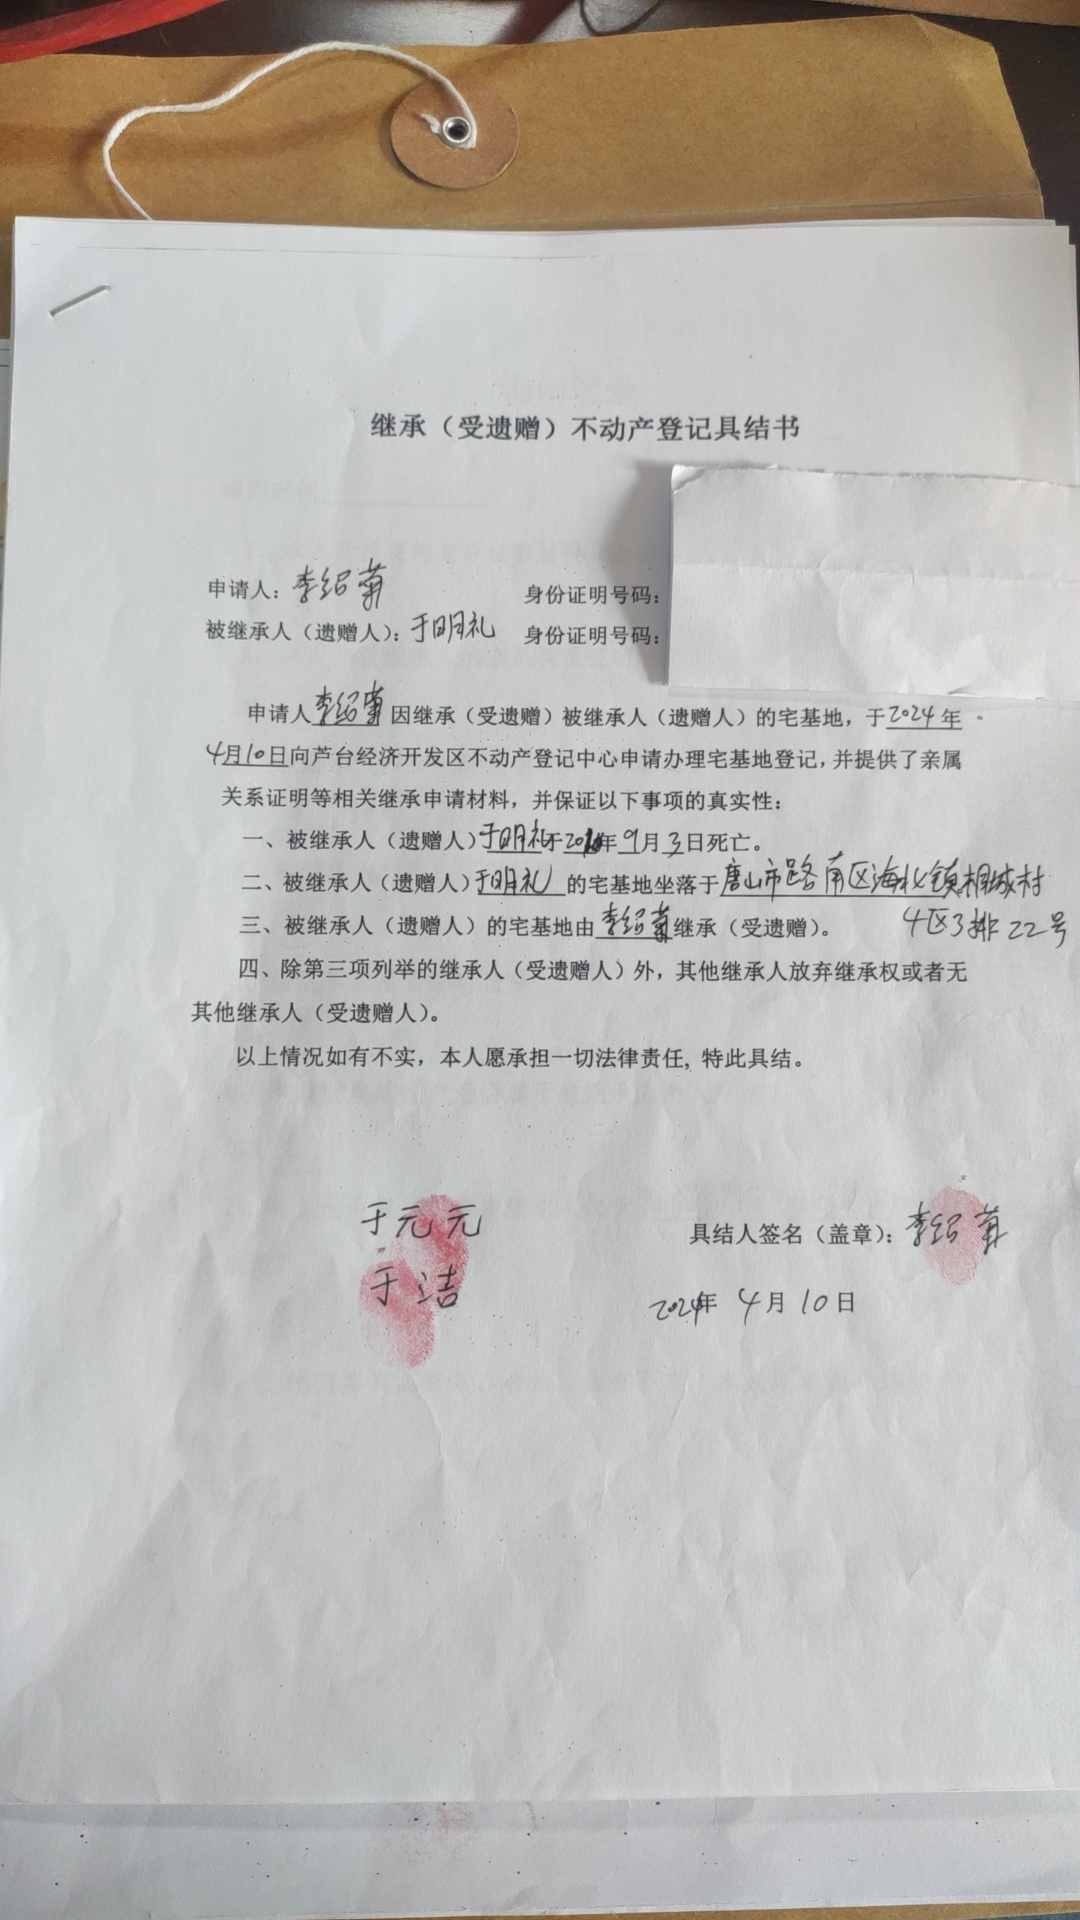 继承（受遗赠）不动产登记具结书
申请人：李绍菊 身份证明号码：
被继承人（遗赠人）：于明礼 身份证明号码：
申请人李绍菊因继承（受遗赠）被继承人（遗赠人）的宅基地，于2024年
4月10日向芦台经济开发区不动产登记中心申请办理宅基地登记，并提供了亲属
关系证明等相关继承申请材料，并保证以下事项的真实性：
一、被继承人（遗赠人）于明礼于年9月3日死亡。
二、被继承人（遗赠人）于明礼的宅基地坐落于唐山市路南区海北镇城村
4区3排22号
三、被继承人（遗赠人）的宅基地由李绍菊继承（受遗赠）。
四、除第三项列举的继承人（受遗赠人）外，其他继承人放弃继承权或者无
其他继承人（受遗赠人）。
以上情况如有不实，本人愿承担一切法律责任，特此具结。
于元元
具结人签名（盖章）：李绍菊
于洁
2024年4月10日